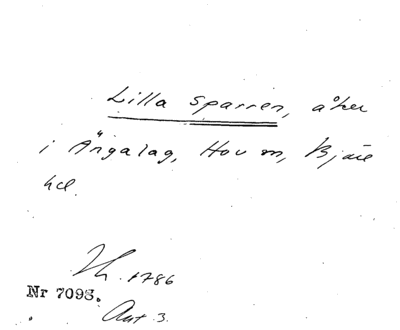 Lilla Sparren, åker
i Ängalag, Hov sn, Bjäre
hd.
Th. 1786
Nr 7098.
Ant 3.